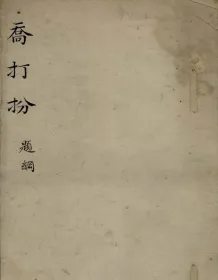 喬打扮
題綱